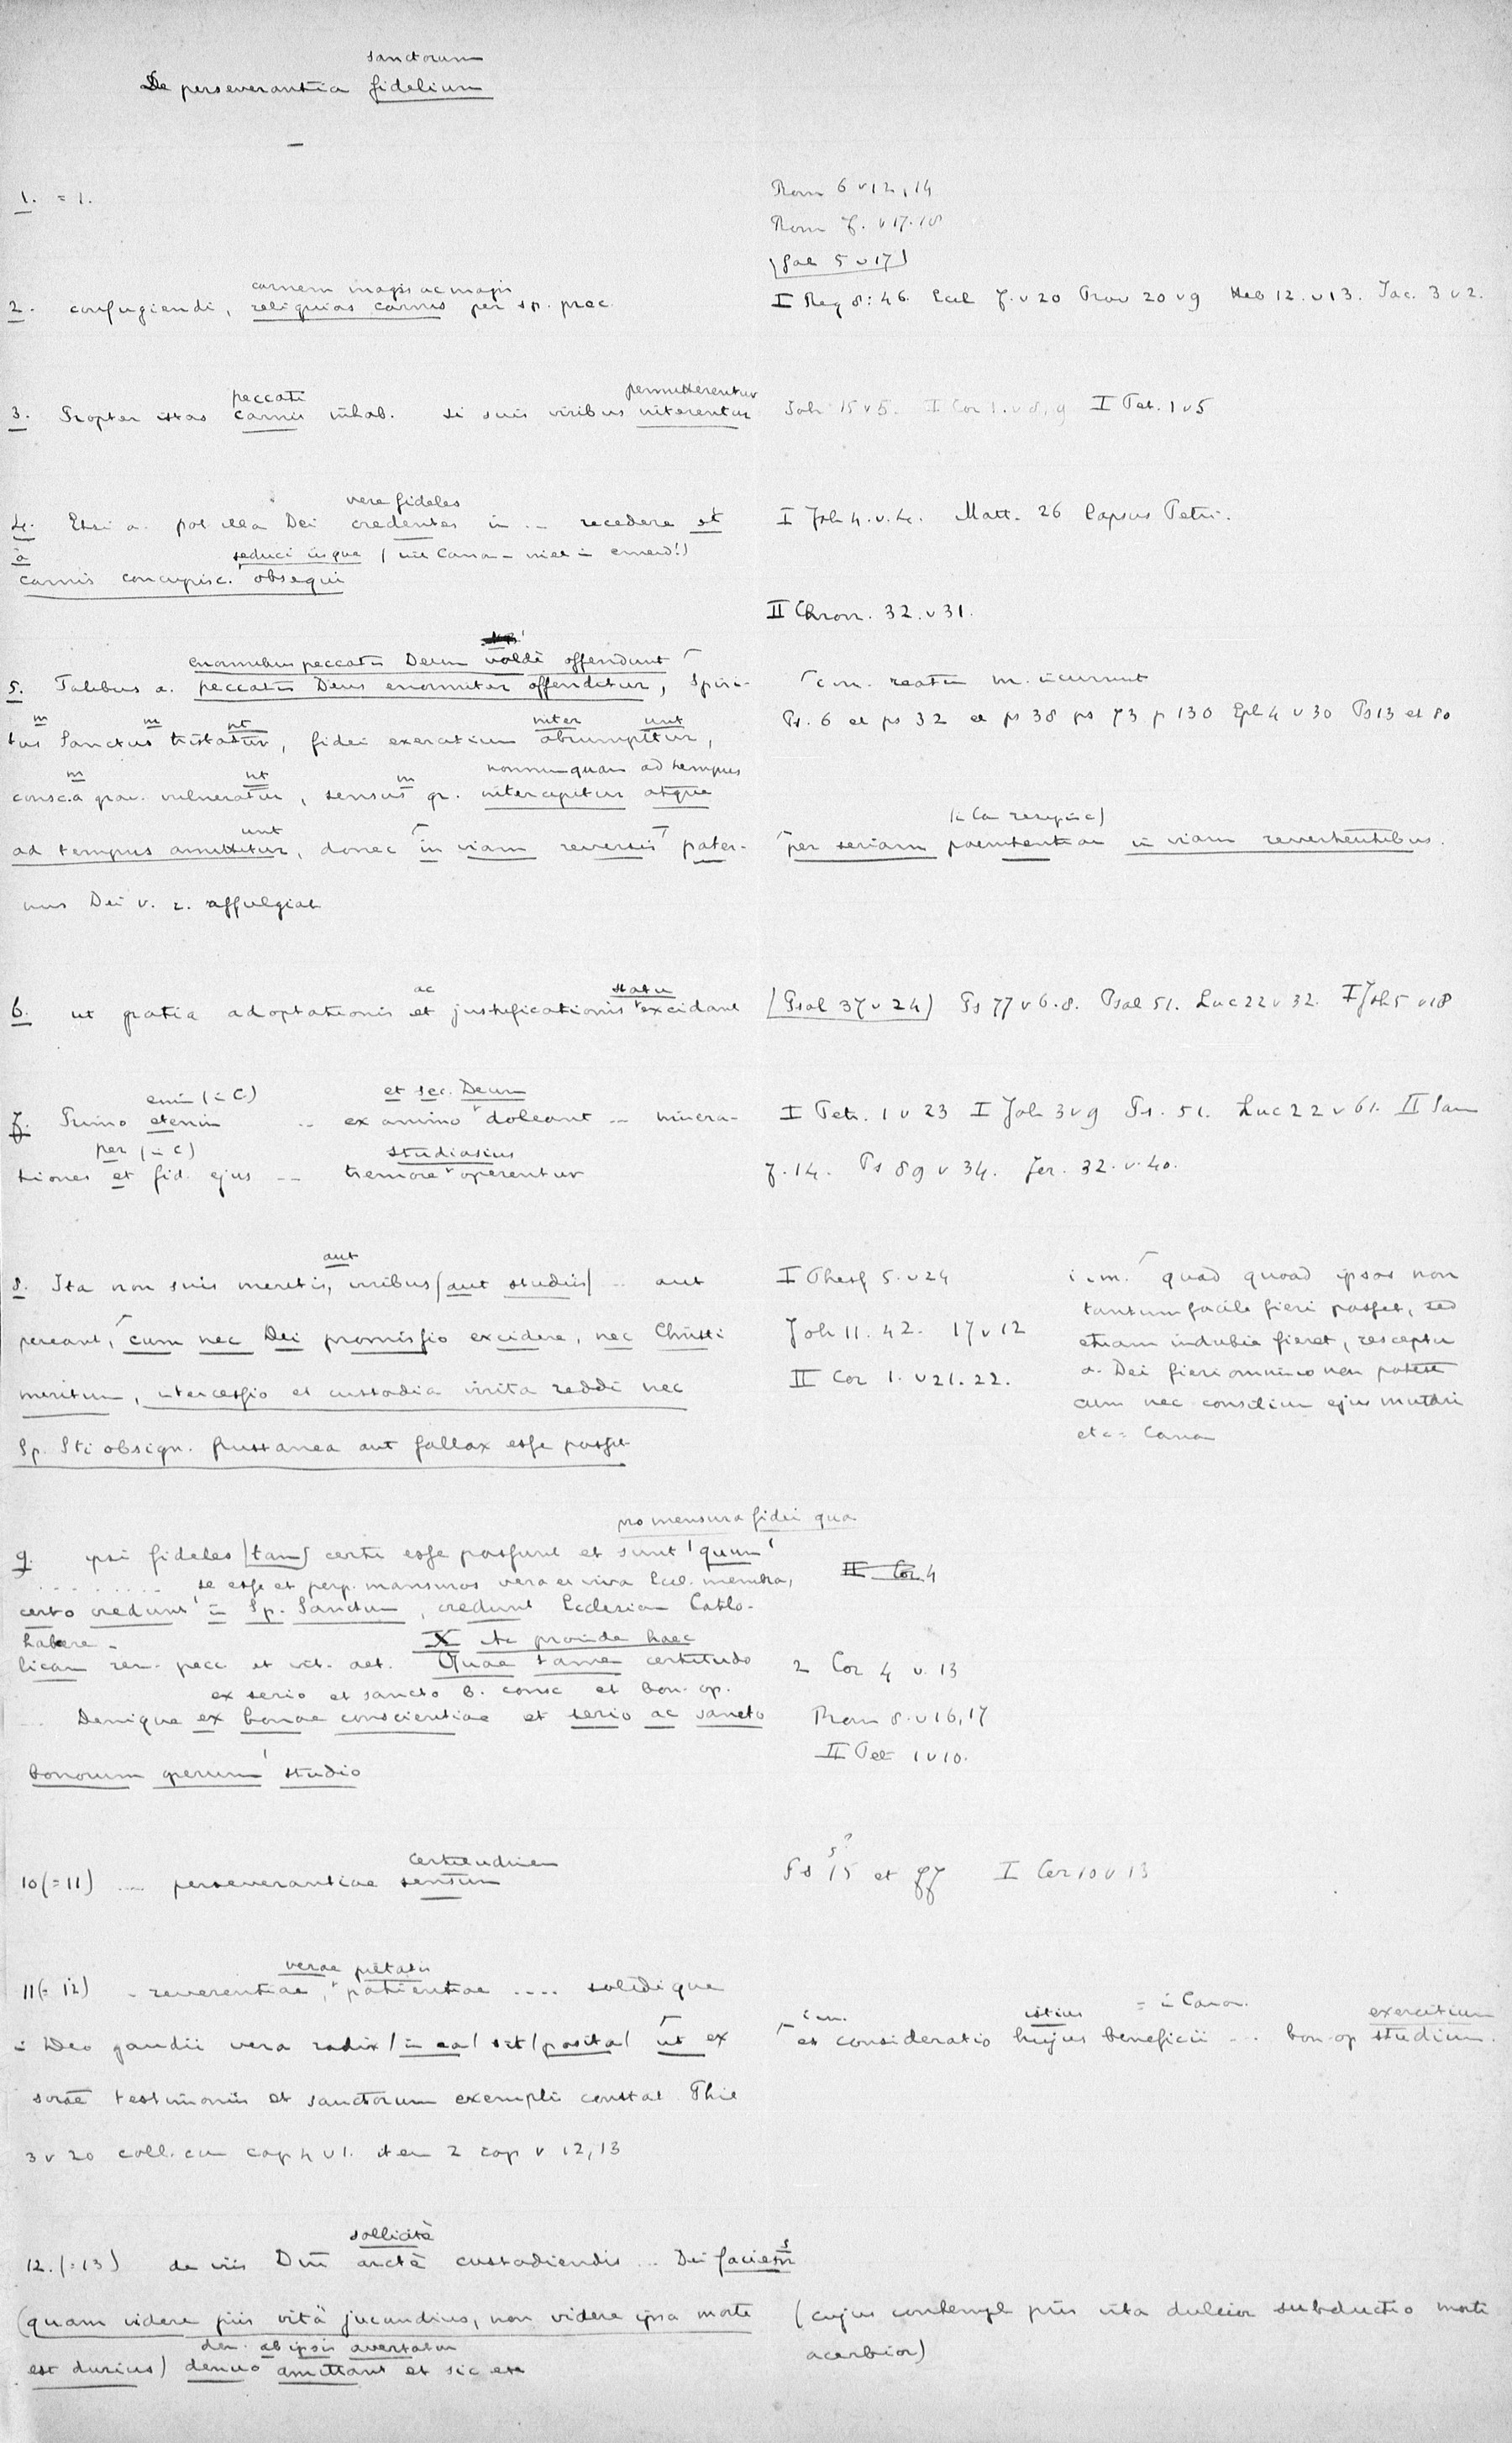 sanctorum
De perseverantia fidelium
1. = 1.
Rom 6 v 12, 14
Rom 7. v 17. 18
(Gal 5 v 17)
carnem magis ac magis
2. confugiendi, reliquias carnis per sp. prec.
I Reg 8: 46. Eccl 7. v 20 Prov 20 v 9 Heb 12. v 13. Jac. 3 v 2.
peccati permitterentur
3. Propter istas carnis inhab. si suis viribus niterentur
Joh 15 v 5. I Cor 1. v 8, 9 I Pet. 1 v 5
vere fideles
4. Etsi a. pot illa Dei credentes in ... recedere et
I Joh 4. v. 4. Matt. 26 lapsus Petri.
à seduci iisque
carnis concupisc. obsequi
II Chron. 32. v 31.
enormibus peccatis Deum valdè offendunt
5. Talibus a. peccatis Deus enormiter offenditur, Spiri-
reatum m. incurrunt
m m nt niter unt
tus Sanctus tristatur, fidei exercitium abrumpitur,
Ps. 6 et ps 32 et ps 38 ps 73 p 130 Eph 4 v 30 Ps 13 et 80
m nt m nonnunquam ad tempus
consc.a grav. vulneratur, sensus gr. intercipitur atque
unt
ad tempus amittitur, donec in viam reversis pater-
per seriam poenitentiam in viam revertentibus.
nus Dei v. r. affulgeat
ac statu
6. ut gratia adoptationis et justificationis excidant
(Psal 37 v 24) Ps 77 v 6. 8. Psal 51. Luc 22 v 32. I Joh 5 v 18
enim (= C) et sec. Deum
7. Primo etenim .. ex animo doleant ... misera-
I Petr. 1 v 23 I Joh 3 v 9 Ps. 51. Luc 22 v 61. II Sam
per (= C) studiosius
tiones et fid. ejus ... tremore operentur
7. 14. Ps 89 v 34. Jer. 32. v. 40.
aut
8. Ita non suis meritis, viribus (aut studiis) ... aut
I Thess 5. v 24
pereant, cum nec Dei promissio excidere, nec Christi
Joh 11. 42. 17 v 12
meritum, intercessio et custodia irrita reddi nec
II Cor 1. v 21. 22.
Sp. Sti obsign. frustanea aut fallax esse possit
quod quoad ipsos non
tantum facile fieri posset, sed
etiam indubie fieret, respectu
a. Dei fieri omnino non potest
cum nec consilium ejus mutari
etc = Canon
pro mensura fidei qua
9. ipsi fideles (tam) certi esse possunt et sunt quum
II Cor 4
se esse et perp. mansuros vera et viva Eccl. membra,
certo credunt in Sp. Sanctum, credunt Ecclesiam Catho-
habere X Ac proinde haec
licam rem. pecc et vit. aet. Quae tamen certitudo
2 Cor 4 v. 13
ex serio et sancto b. consc et bon. op.
Denique ex bonae conscientiae et serio ac sancto
Rom 8. v 16, 17
II Pet 1 v 10.
bonorum operum studio
certitudinem
10 (= 11) .... perseverantiae sensum
5?
Ps 15 et 77 I Cor 10 v 13
verae pietatis
11 (= 12) - reverentiae, patientiae .... solidique
in Deo gaudii vera radix (in ea) sit (posita) ut ex
istius = in Canon. exercitium
et consideratio hujus beneficii ... bon. op studium.
testimoniis et sanctorum exemplis constat Phil
3 v 20 coll. cum cap 4 v 1. item 2 cap v 12, 13
sollicitè s
12. (= 13) de viis Dni arctè custodiendis ... Dei faciem
(quam videre piis vitâ jucundius, non videre ipsa morte
(cujus contempl piis vita dulcior subductio morte
den. ab ipsis avertatur
est durius) denuo amittant et sic etc
acerbior)